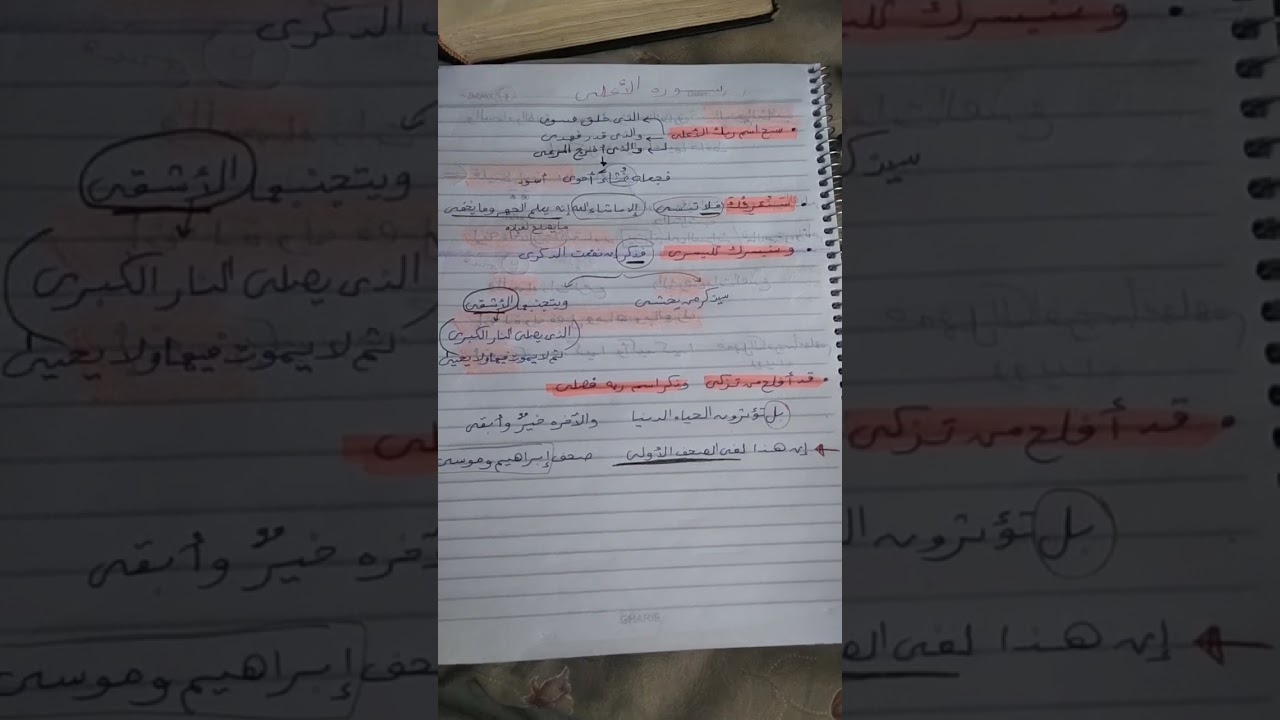 سورة الأعلى
الذى خلق فسوى
• سبح اسم ربك الأعلى والذى قدر فهدى
والذى أخرج المرعى
فجعله غثاءً أحوى أسود
• سنقرؤك فلا تنسى إلا ماشاء الله إنه يعلم الجهر وما يخفى
• ونيسرك لليسرى فذكر إن نفعت الذكرى
سيذكر من يخشى ويتجنبها الأشقى
الذى يصلى النار الكبرى
ثم لا يموت فيها ولا يحيى
• قد أفلح من تزكى وذكر اسم ربه فصلى
بل تؤثرون الحياه الدنيا والآخره خيرٌ وأبقى
إن هذا لفى الصحف الأولى صحف إبراهيم وموسى